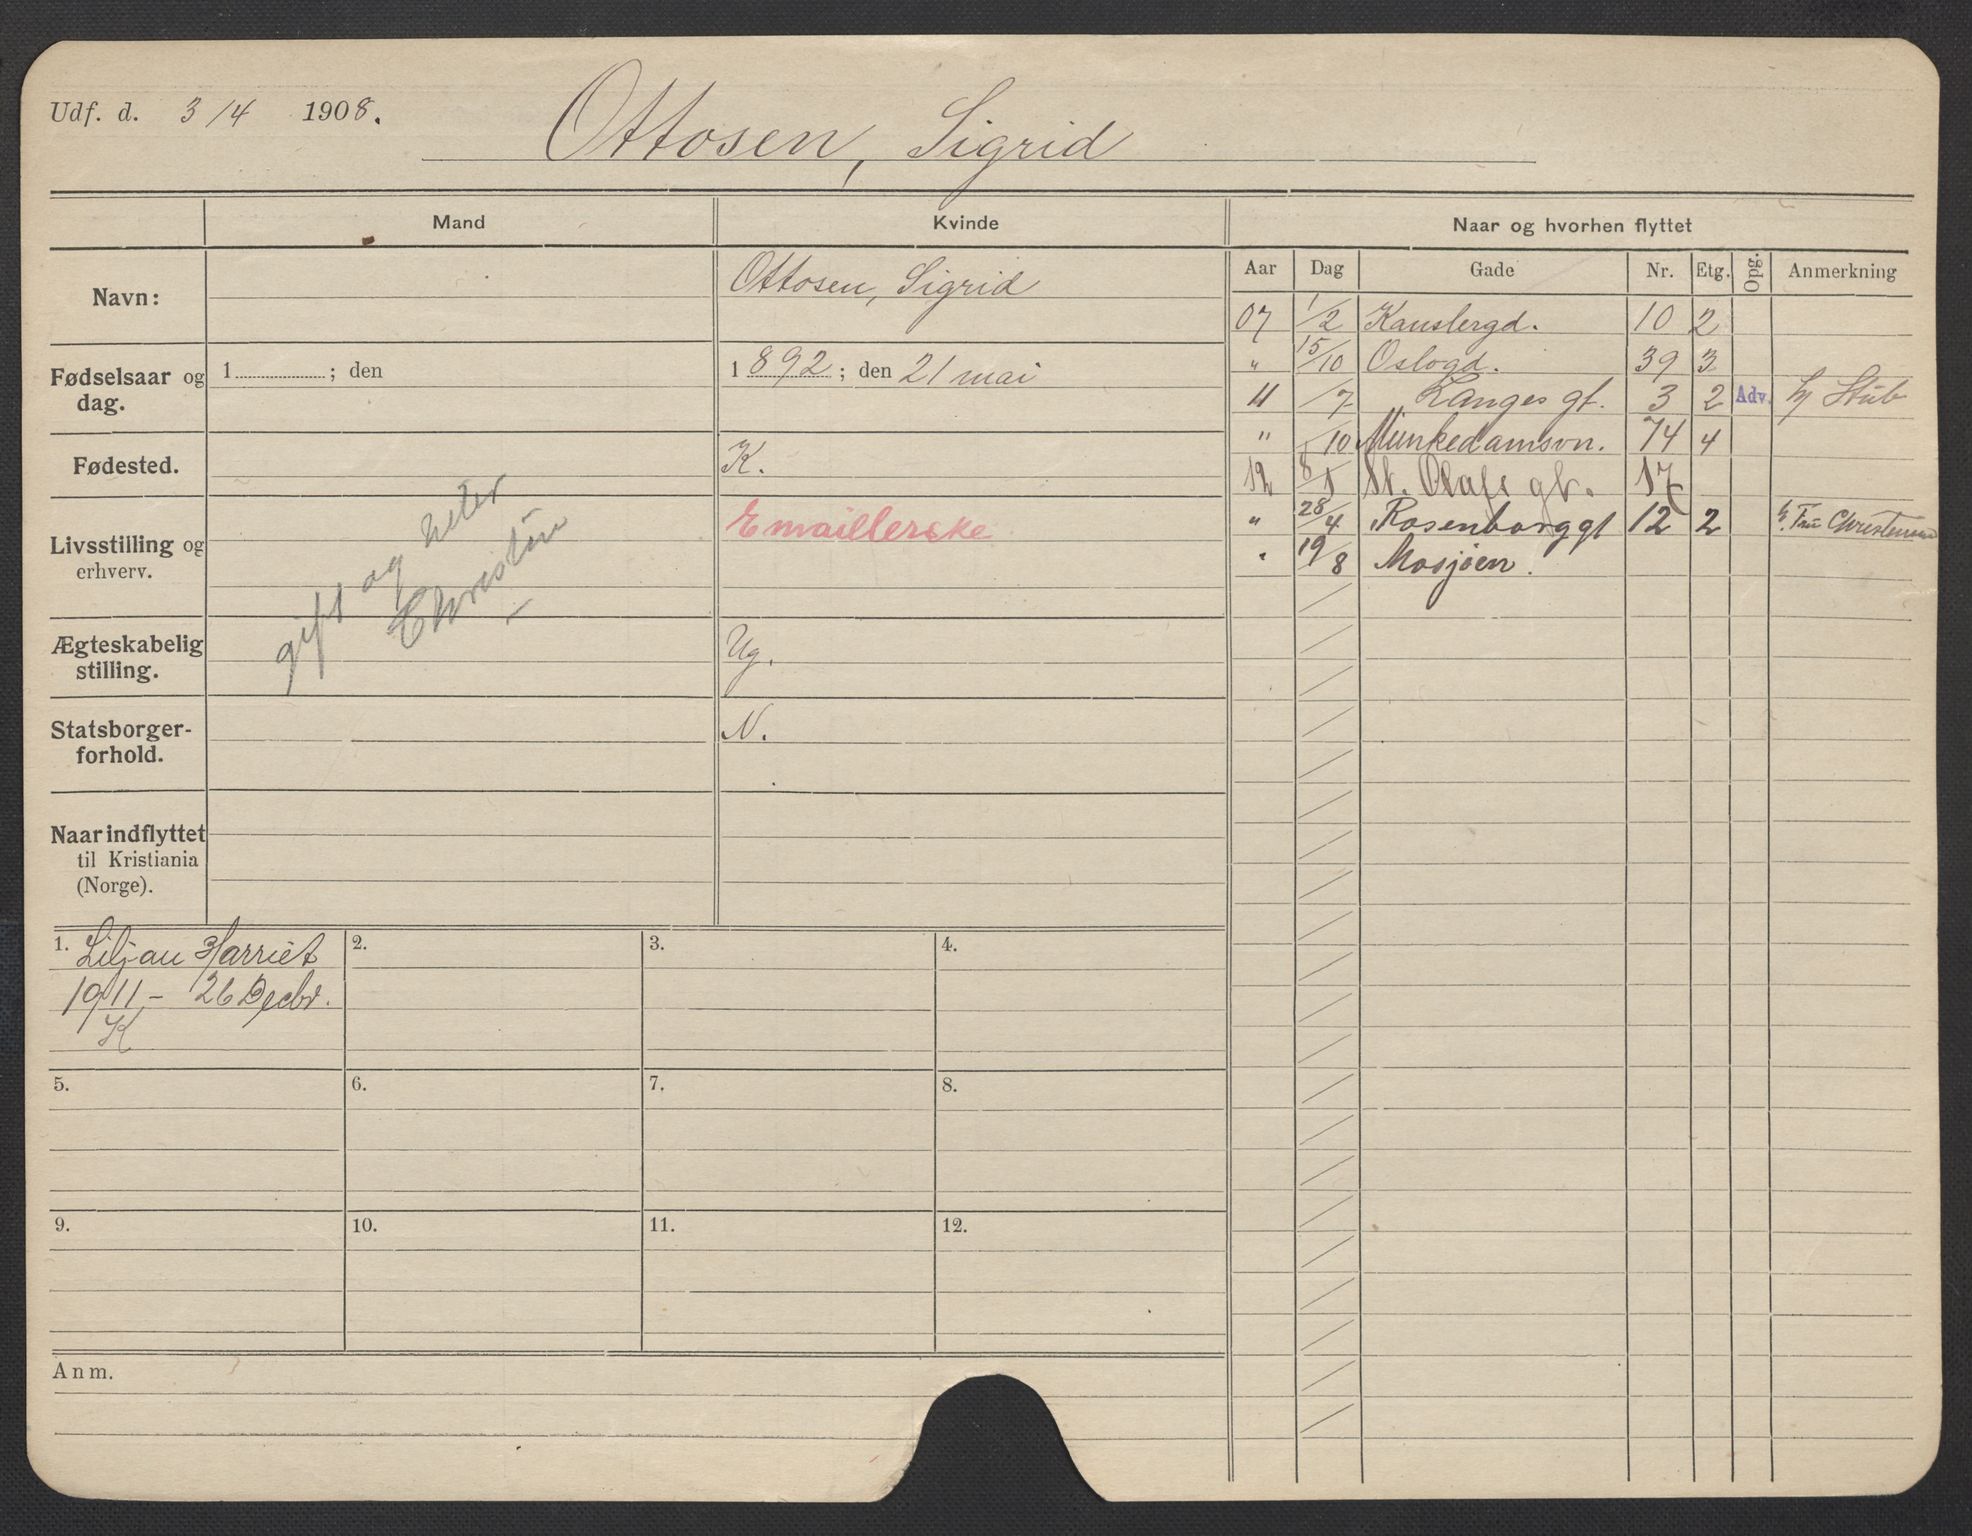 Udf. d. 3/4 1908.
Ottosen, Sigrid
Mand Kvinde Naar og hvorhen flyttet
Aar Dag Gade Nr. Etg. Opg. Anmerkning
Navn: Ottosen, Sigrid
Fødselsaar og dag. 1 ; den 1 892 ; den 21 mai
Fødested. K.
Livsstilling og erhverv. Emaillerske
Ægteskabelig stilling. Ug.
Statsborger-
forhold. N.
Naar indflyttet
til Kristiania
(Norge).
gift og heter
Christin
07 1/2 Kanslergd. 10 2
" 15/10 Oslogd. 39 3
11 /7 Langes gt. 3 2 Adv. Stub
" /10 Munkedamsvn. 74 4
12 8/1 St. Olafs gt. 17
" 28/4 Rosenborggt 12 2 Fru Christensen
" 19/8 Mosjøen.
1. Liljan Harriet
1911 – 26 Decbr.
K
2.
3.
4.
5.
6.
7.
8.
9.
10.
11.
12.
Anm.